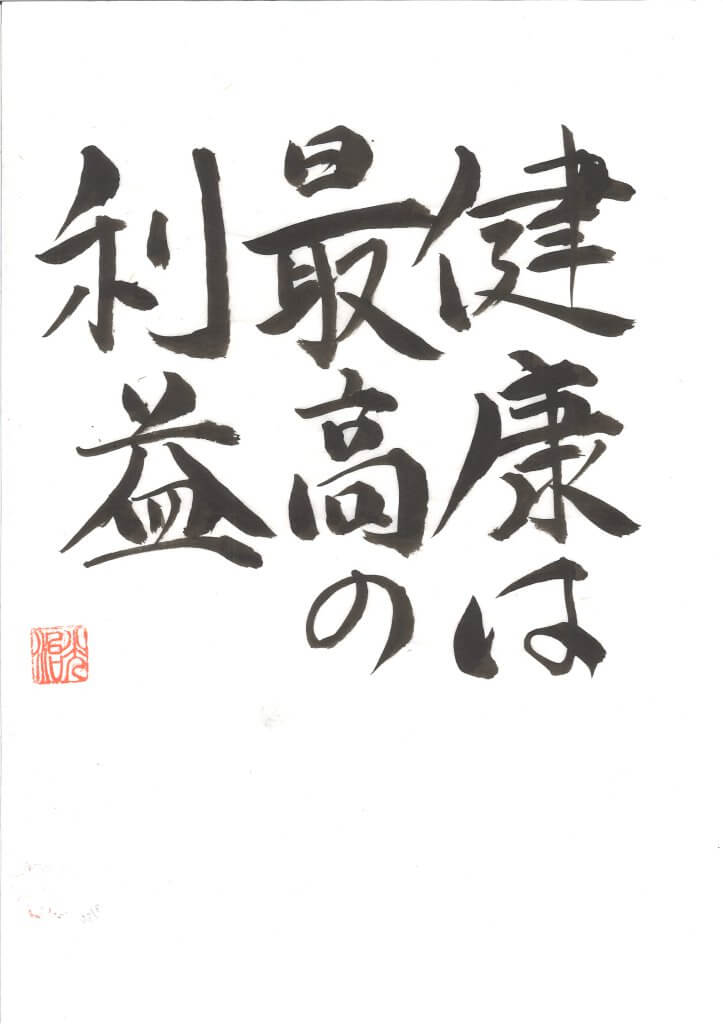 健康は
最高の
利益
光沿